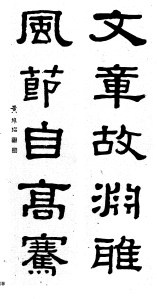 文章故淵雅
風節自高騫